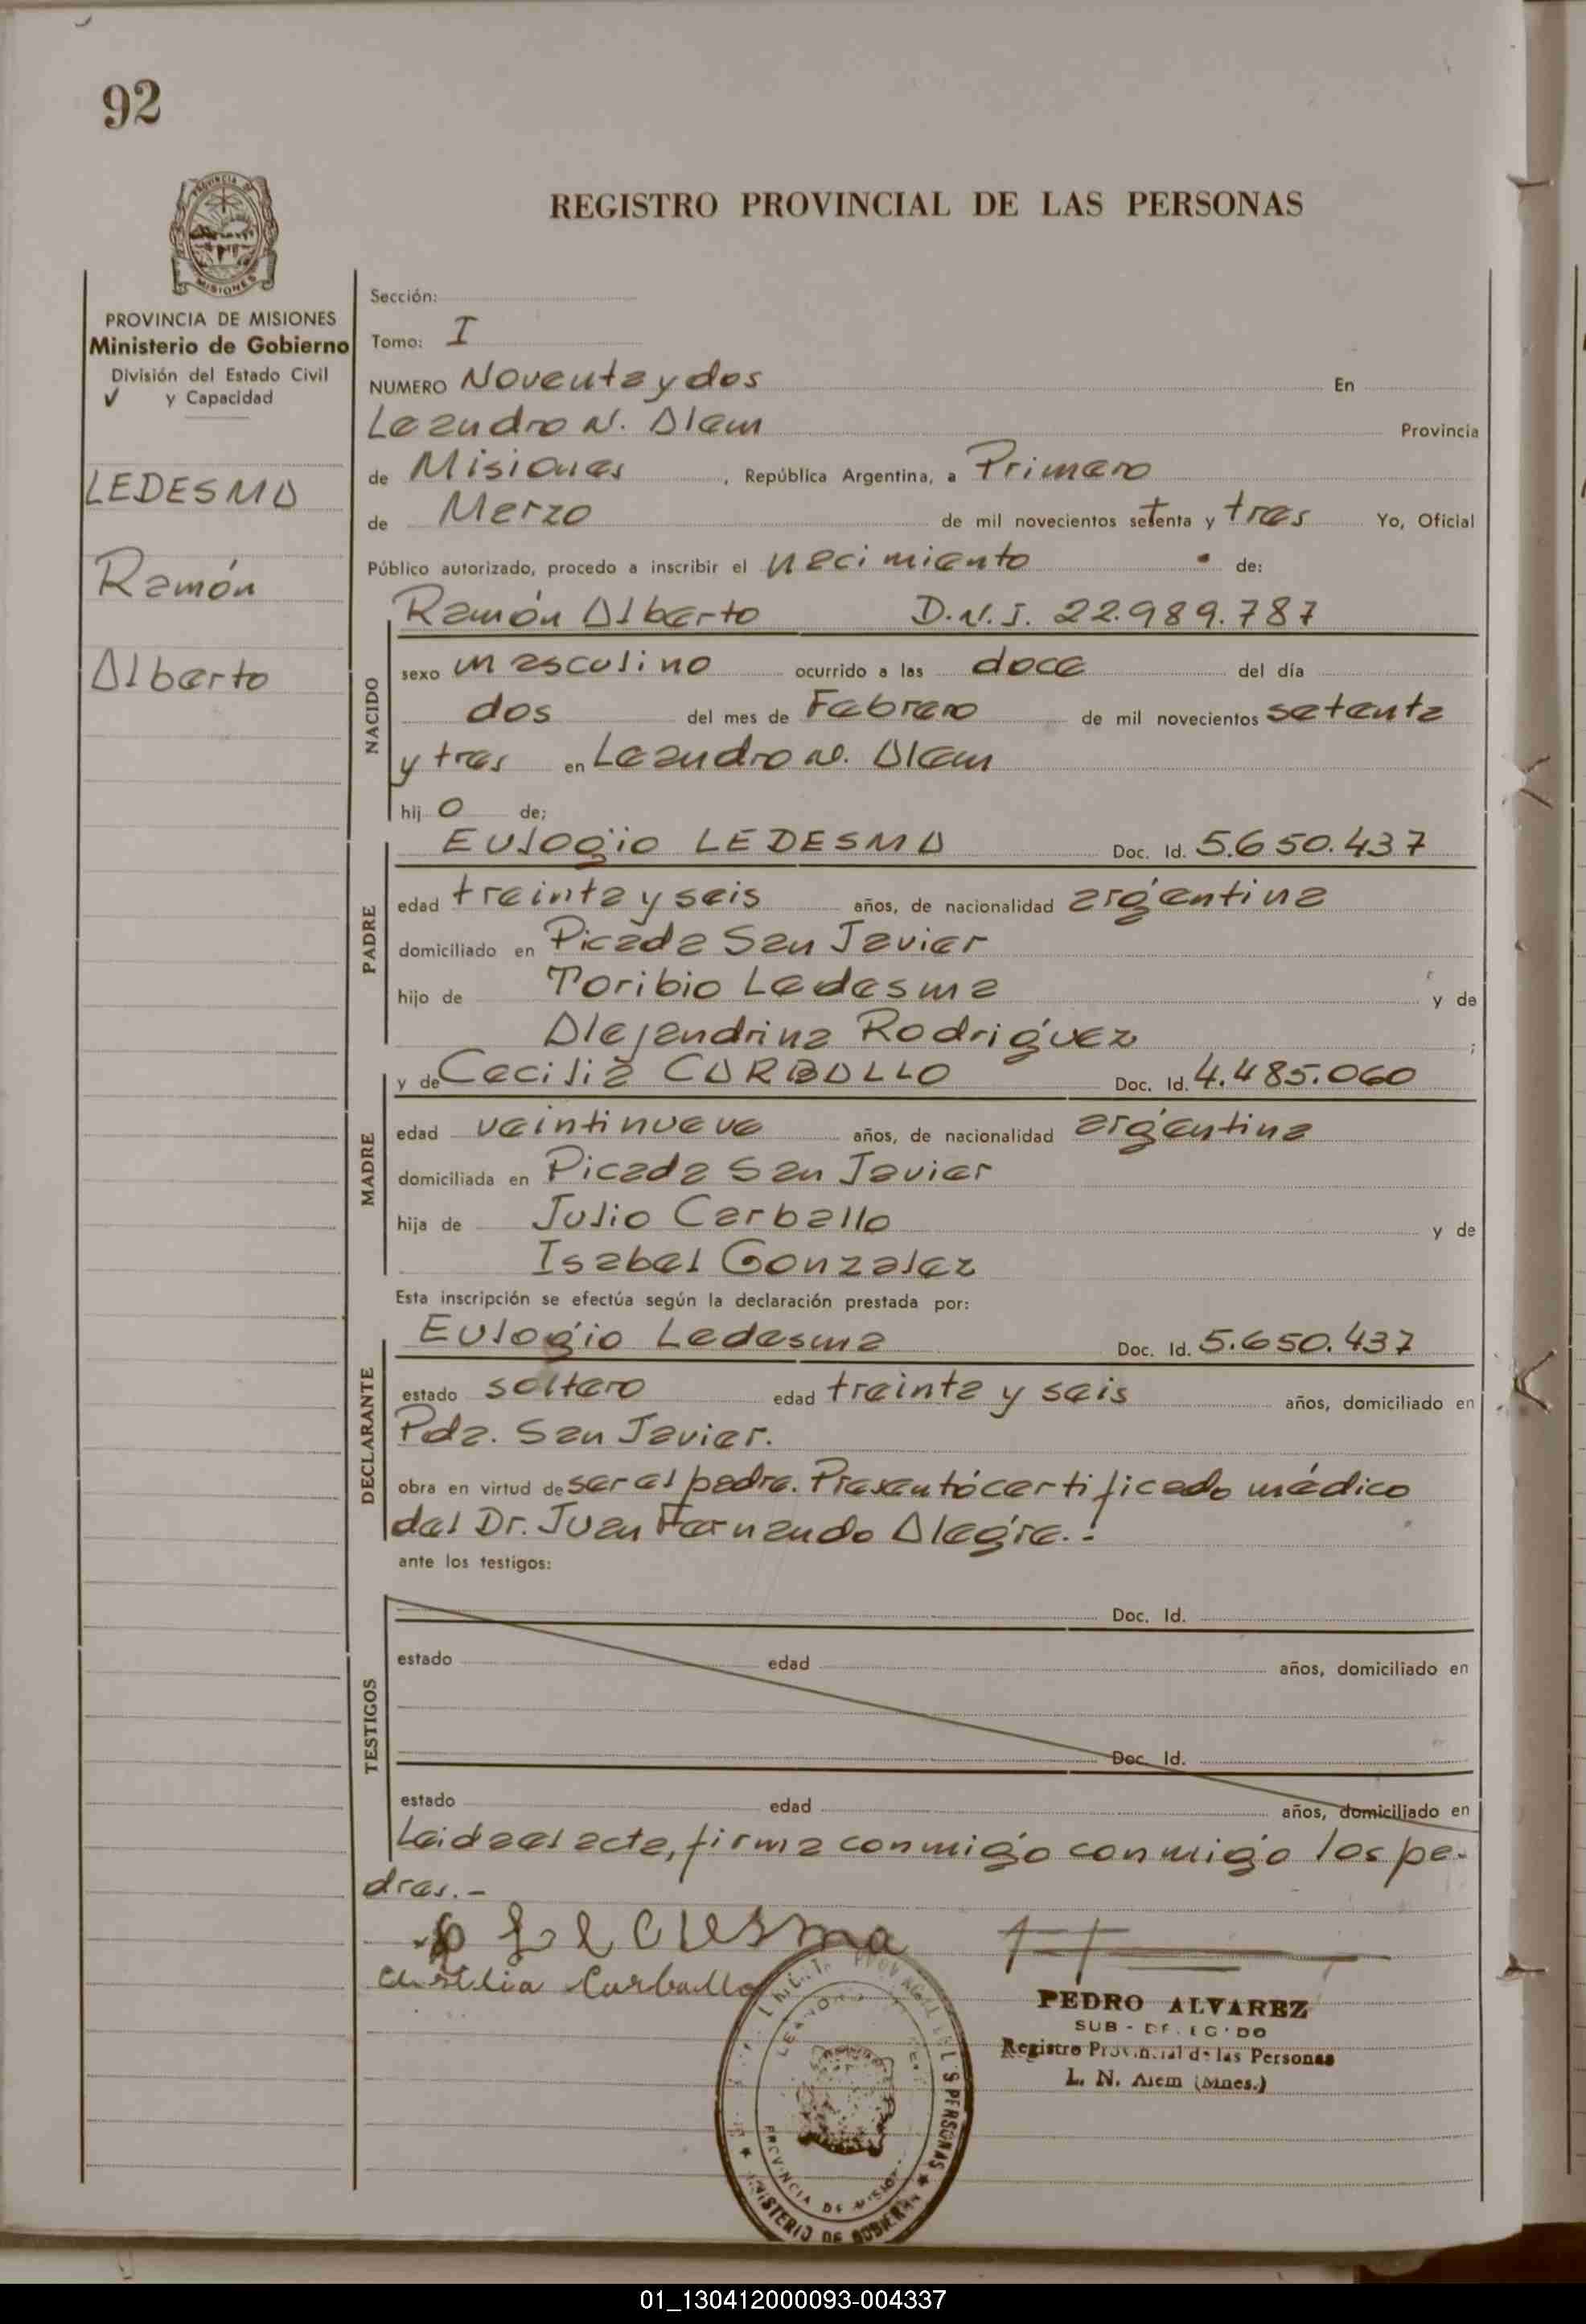 92
PROVINCIA DE MISIONES
REGISTRO PROVINCIAL DE LAS PERSONAS
PROVINCIA DE MISIONES
Ministerio de Gobierno
División del Estado Civil
y Capacidad
LEDESMA
Ramón
Alberto
Sección:
Tomo: I
NUMERO Noventa y dos En
Leandro N. Alem Provincia
de Misiones, República Argentina, a Primero
de Marzo de mil novecientos setenta y tres Yo, Oficial
Público autorizado, procedo a inscribir el nacimiento de:
Ramón Alberto D.N.I. 22.989.787
NACIDO
sexo masculino ocurrido a las doce del día
dos del mes de Febrero de mil novecientos setenta
y tres en Leandro N. Alem
hij o de;
Eulogio LEDESMA Doc. Id. 5.650.437
PADRE
edad treinta y seis años, de nacionalidad argentina
domiciliado en Picada San Javier
hijo de Toribio Ledesma y de
Alejandrina Rodriguez ;
y de Cecilia CARBALLO Doc. Id. 4.485.060
MADRE
edad veintinueve años, de nacionalidad argentina
domiciliada en Picada San Javier
hija de Julio Carballo y de
Isabel Gonzalez
Esta inscripción se efectúa según la declaración prestada por:
Eulogio Ledesma Doc. Id. 5.650.437
DECLARANTE
estado soltero edad treinta y seis años, domiciliado en
Pda. San Javier.
obra en virtud de ser el padre. Presentó certificado médico
del Dr. Juan Fernando Alegre.-
ante los testigos:
TESTIGOS
Doc. Id.
estado edad años, domiciliado en
Doc. Id.
estado edad años, domiciliado en
Leida el acta, firma conmigo conmigo los pa-
dres.-
Carballo
PEDRO ALVAREZ
SUB - DELEGADO
Registro Provincial de las Personas
L. N. Alem (Mnes.)
PERSONAS
PROVINCIA DE MISIONES
MINISTERIO DE GOBIERNO
01_130412000093-004337